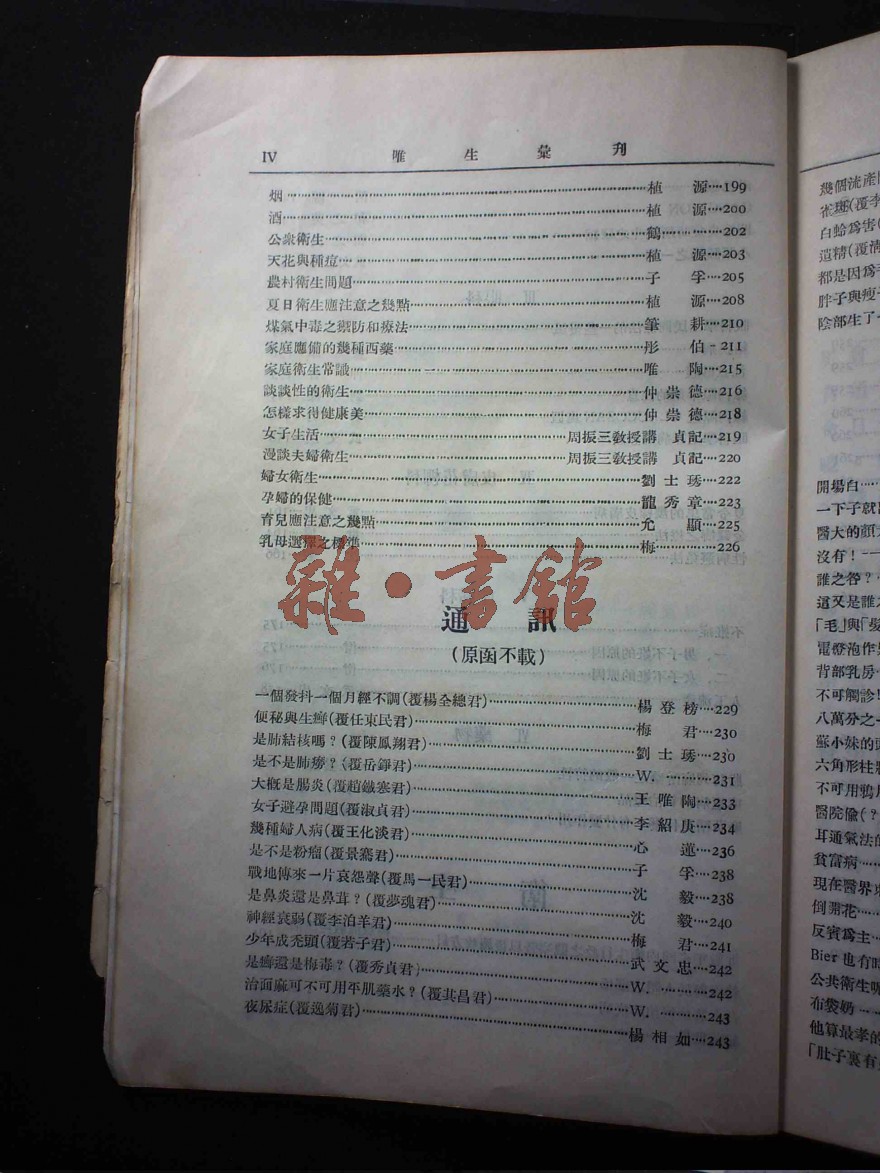 IV 唯生彙刊
烟……植源……199
酒……植源……200
公衆衛生……鶴……202
天花與種痘……植源……203
農村衛生問題……子孚……205
夏日衛生應注意之幾點……植源……208
煤氣中毒之禦防和療法……筆耕……210
家庭應備的幾種西藥……彤伯-211
家庭衛生常識……唯陶……215
談談性的衛生……仲崇德……216
怎樣求得健康美……仲崇德……218
女子生活……周振三敎授講 貞記……219
漫談夫婦衛生……周振三敎授講 貞記……220
婦女衛生……劉士琇……222
孕婦的保健……龍秀章……223
育兒應注意之幾點……尤顯……225
乳母選擇之標準……梅……226
雜·書館
通訊
(原函不載)
一個發抖一個月經不調(覆楊全總君)……楊登榜……229
便秘與生癬(覆任東民君)……梅君……230
是肺結核嗎?(覆陳鳳翔君)……劉士琇……230
是不是肺癆?(覆岳錚君)……W.……231
大槪是腸炎(覆趙鐵寒君)……王唯陶……233
女子避孕問題(覆淑貞君)……李紹庚……234
幾種婦人病(覆王化淡君)……心蓮……236
是不是粉瘤(覆景騫君)……子孚……238
戰地傳來一片哀怨聲(覆馬一民君)……沈毅……238
是鼻炎還是鼻茸?(覆夢魂君)……沈毅……240
神經衰弱(覆李泊羊君)……梅君……241
少年成禿頭(覆若子君)……武文忠……242
是癬還是梅毒?(覆秀貞君)……W.……242
治面麻可不可用平肌藥水?(覆其昌君)……W.……243
夜尿症(覆逸菊君)……楊相如……243
幾個流產
雀斑(覆李
白蛤爲害(
遺精(覆
都是因爲
胖子與瘦子
陰部生了
開場白……
一下子就
醫大的顏
沒有!
誰之咎?
這又是誰
「毛」與「髮
電發泡作
背部乳房
不可觸診!
八萬分之一
蘇小妹的
六角形柱
不可用鴉片
醫院儉(?
耳通氣法的
貧富病……
現在醫界
倒開花……
反賓爲主
Bier也有時
公共衛生
布袋奶……
他算最孝的
「肚子裏有